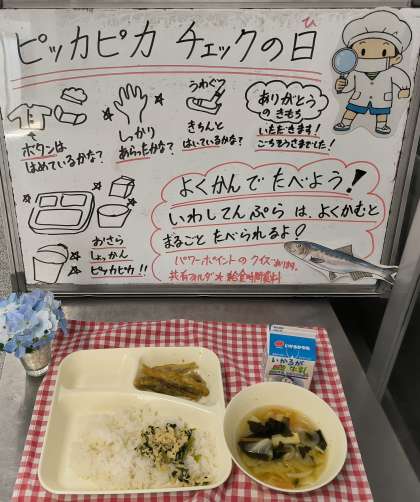 ピッカピカ チェックの日
び
ボタンは
はめているかな?
しっかり
あらったかな?
うわぐつ
きちんと
はいているかな?
ありがとう
のきもち
いただきます!
ごちそうさまでした!
おさら
しょっかん
ピッカピカ!!
よくかんでたべよう!
いわしてんぷらは、よくかむと
まるごとたべられるよ!
パワーポイントのクイズあります。
いかるが
牛乳